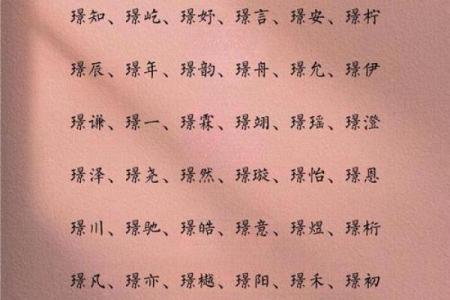 璟知、璟屹、璟妤、璟言、璟安、璟柠
璟辰、璟年、璟韵、璟舟、璟允、璟伊
璟谦、璟一、璟霖、璟翊、璟瑶、璟澄
璟泽、璟尧、璟然、璟璇、璟怡、璟恩
璟川、璟驰、璟皓、璟意、璟煜、璟桁
璟凡、璟亦、璟樾、璟阳、璟禾、璟初